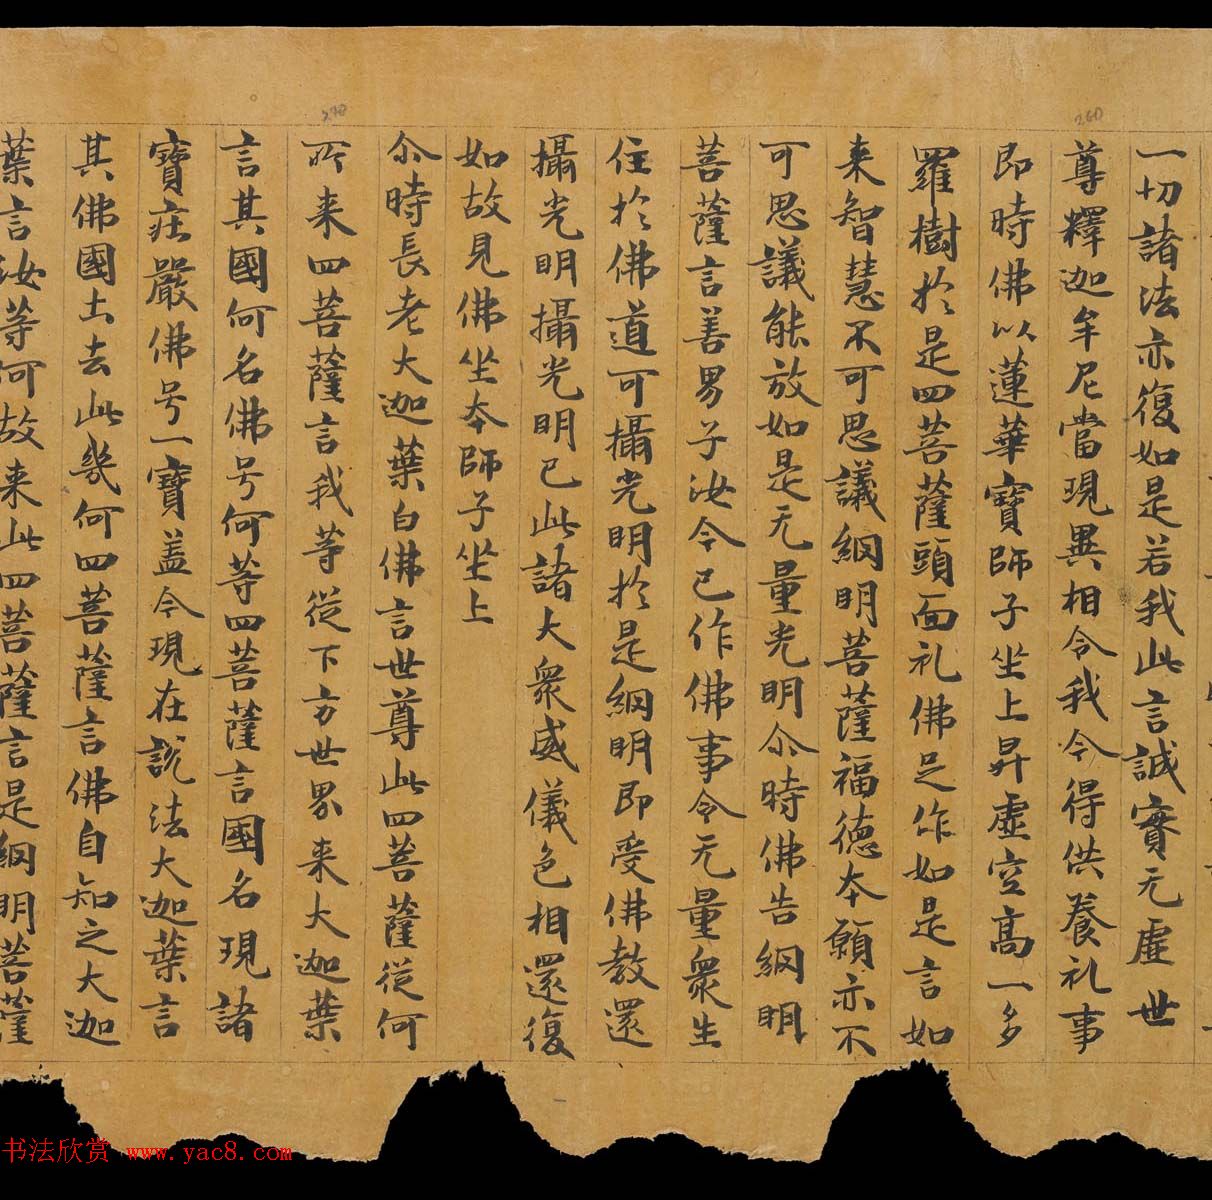 一切諸法亦復如是若我此言誠實无虛世
尊釋迦牟尼當現異相令我今得供養礼事
即時佛以蓮華寶師子坐上昇虛空高一多
羅樹於是四菩薩頭面礼佛足作如是言如
来智慧不可思議網明菩薩福德本願亦不
可思議能放如是无量光明尒時佛告網明
菩薩言善男子汝今已作佛事令无量衆生
住於佛道可攝光明於是網明即受佛教還
攝光明攝光明已此諸大衆威儀色相還復
如故見佛坐本師子坐上
尒時長老大迦葉白佛言世尊此四菩薩從何
所来四菩薩言我等從下方世界来大迦葉
言其國何名佛号何等四菩薩言國名現諸
寶莊嚴佛号一寶盖今現在說法大迦葉言
其佛國土去此幾何四菩薩言佛自知之大迦
葉言汝等何故来此四菩薩言是網明菩薩
260
270
书法欣赏 www.yac8.com